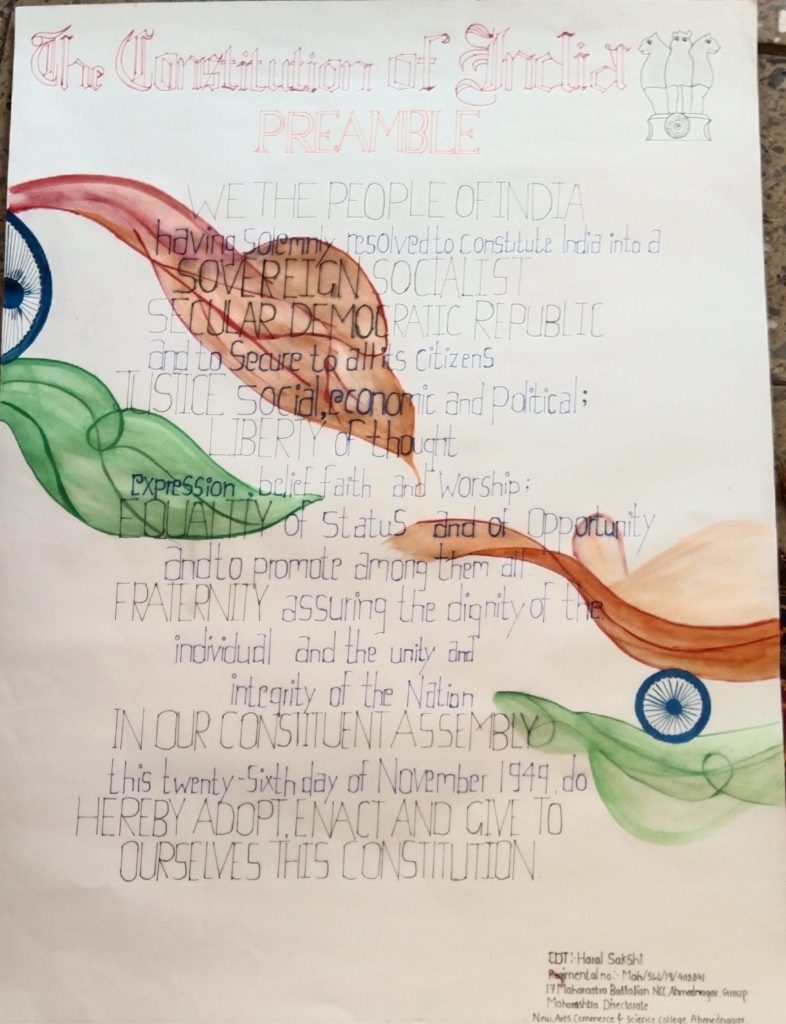 The Constitution of India
PREAMBLE
WE THE PEOPLE OF INDIA
having Solemnly resolved to constitute India into a
SOVEREIGN SOCIALIST
SECULAR DEMOCRATIC REPUBLIC
and to Secure to all its Citizens
JUSTICE Social, economic and Political;
LIBERTY of thought
expression, belief faith and Worship;
EQUALITY of Status and of Opportunity
and to promote among them all.
FRATERNITY assuring the dignity of the
individual and the unity and
integrity of the Nation
IN OUR CONSTITUENT ASSEMBLY
this twenty-Sixth day of November 1949, do
HEREBY ADOPT, ENACT AND GIVE TO
OURSELVES THIS CONSTITUTION.
CDT:- Haral Sakshi
Regimental no:- Mah/SW/19/402841
17 Maharastra Battalion NCC Ahmednagar, Group
Maharashtra Dhectorate
New, Arts, Commerce & Science college Ahmednagar